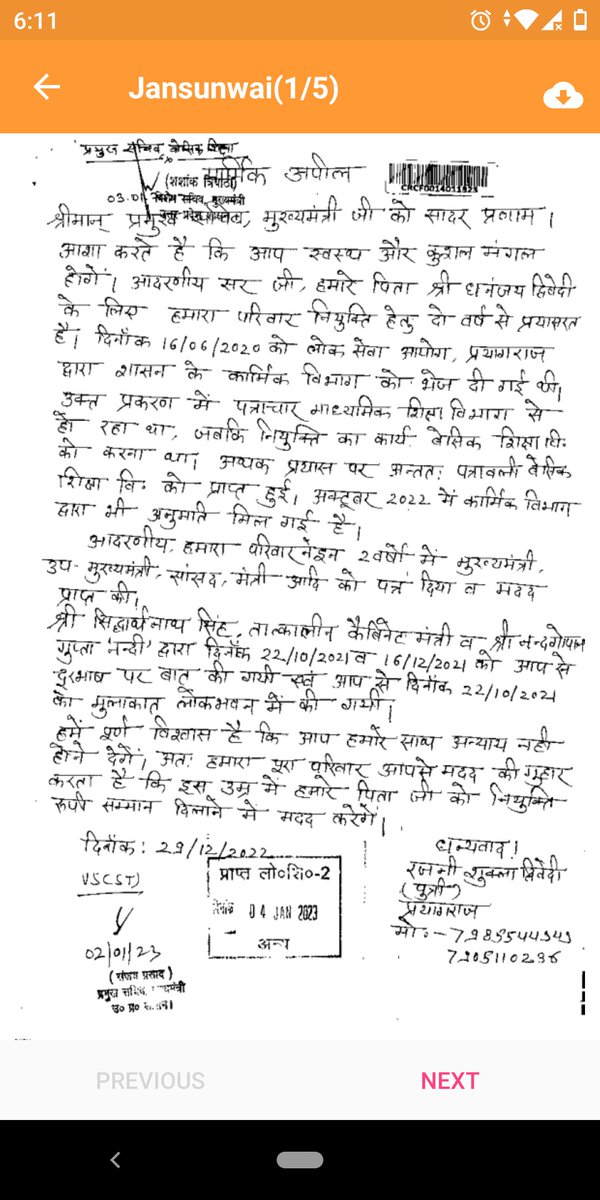 6:11
Jansunwai(1/5)
प्रमुख सचिव बेसिक शिक्षा
मार्मिक अपील
(शशांक त्रिपाठी)
CRCF0014011523
03.01 विशेष सचिव, मुख्यमंत्री
श्रीमान् प्रमुख, मुख्यमंत्री जी को सादर प्रणाम।
आशा करते है कि आप स्वस्थ और कुशल मंगल
होगें। आदरणीय सर जी, हमारे पिता श्री धनंजय द्विवेदी
के लिए हमारा परिवार नियुक्ति हेतु दो वर्ष से प्रयासरत
है। दिनाँक 16/06/2020 को लोक सेवा आयोग, प्रयागराज
द्वारा शासन के कार्मिक विभाग को भेज दी गई थी।
उक्त प्रकरण में पत्राचार माध्यमिक शिक्षा विभाग से
हो रहा था, जबकि नियुक्ति का कार्य बेसिक शिक्षा वि॰
को करना था। अथक प्रयास पर अन्ततः पत्रावली बेसिक
शिक्षा वि॰ को प्राप्त हुई। अक्टूबर 2022 में कार्मिक विभाग
द्वारा भी अनुमति मिल गई है।
आदरणीय, हमारा परिवार ने इन 2 वर्षो में मुख्यमंत्री,
उप-मुख्यमंत्री, सांसद, मंत्री आदि को पत्र दिया व मदद
प्राप्त की।
श्री सिद्धार्थनाथ सिंह, तात्कालीन कैबिनेट मंत्री व श्री नन्दगोपाल
गुप्ता 'नन्दी' द्वारा दिनाँक 22/10/2021 व 16/12/2021 को आप से
दूरभाष पर बात की गयी एवं आप से दिनाँक 22/10/2021
को मुलाकात लोकभवन में की गयी।
हमें पूर्ण विश्वास है कि आप हमारे साथ अन्याय नही
होने देगें। अतः हमारा पूरा परिवार आपसे मदद की गुहार
करता है कि इस उम्र में हमारे पिता जी को नियुक्ति
रूपी सम्मान दिलाने में मदद करेगें।
दिनाँक : 29/12/2022
धन्यवाद!
रजनी शुक्ला द्विवेदी
(पुत्री)
प्रयागराज
प्राप्त लो०शि०-2
दिनांक 04 JAN 2023
अन्य
02/01/23
(संजय प्रसाद)
प्रमुख सचिव मुख्यमंत्री
उ० प्र० शासन।
PREVIOUS
NEXT